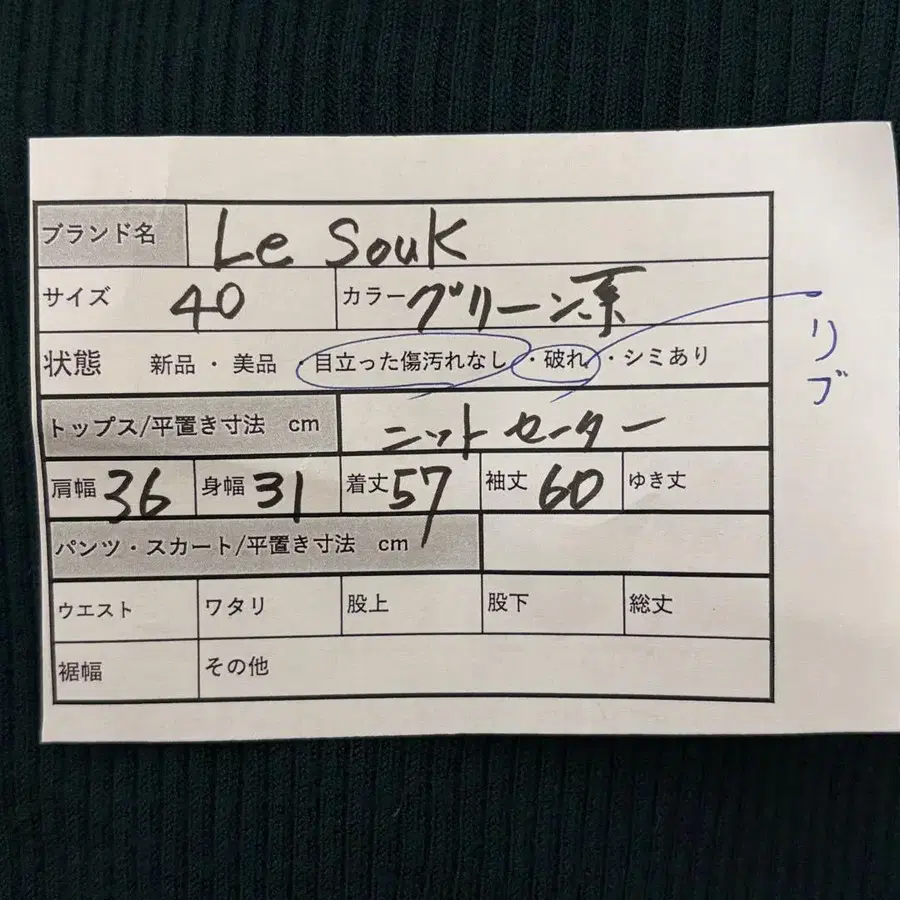 ブランド名 Le souk
サイズ 40 カラー グリーン系
状態 新品・美品・目立った傷汚れなし・破れ・シミあり
リブ
トップス/平置き寸法 cm ニットセーター
肩幅 36 身幅 31 着丈 57 袖丈 60 ゆき丈
パンツ・スカート/平置き寸法 cm
ウエスト ワタリ 股上 股下 総丈
裾幅 その他